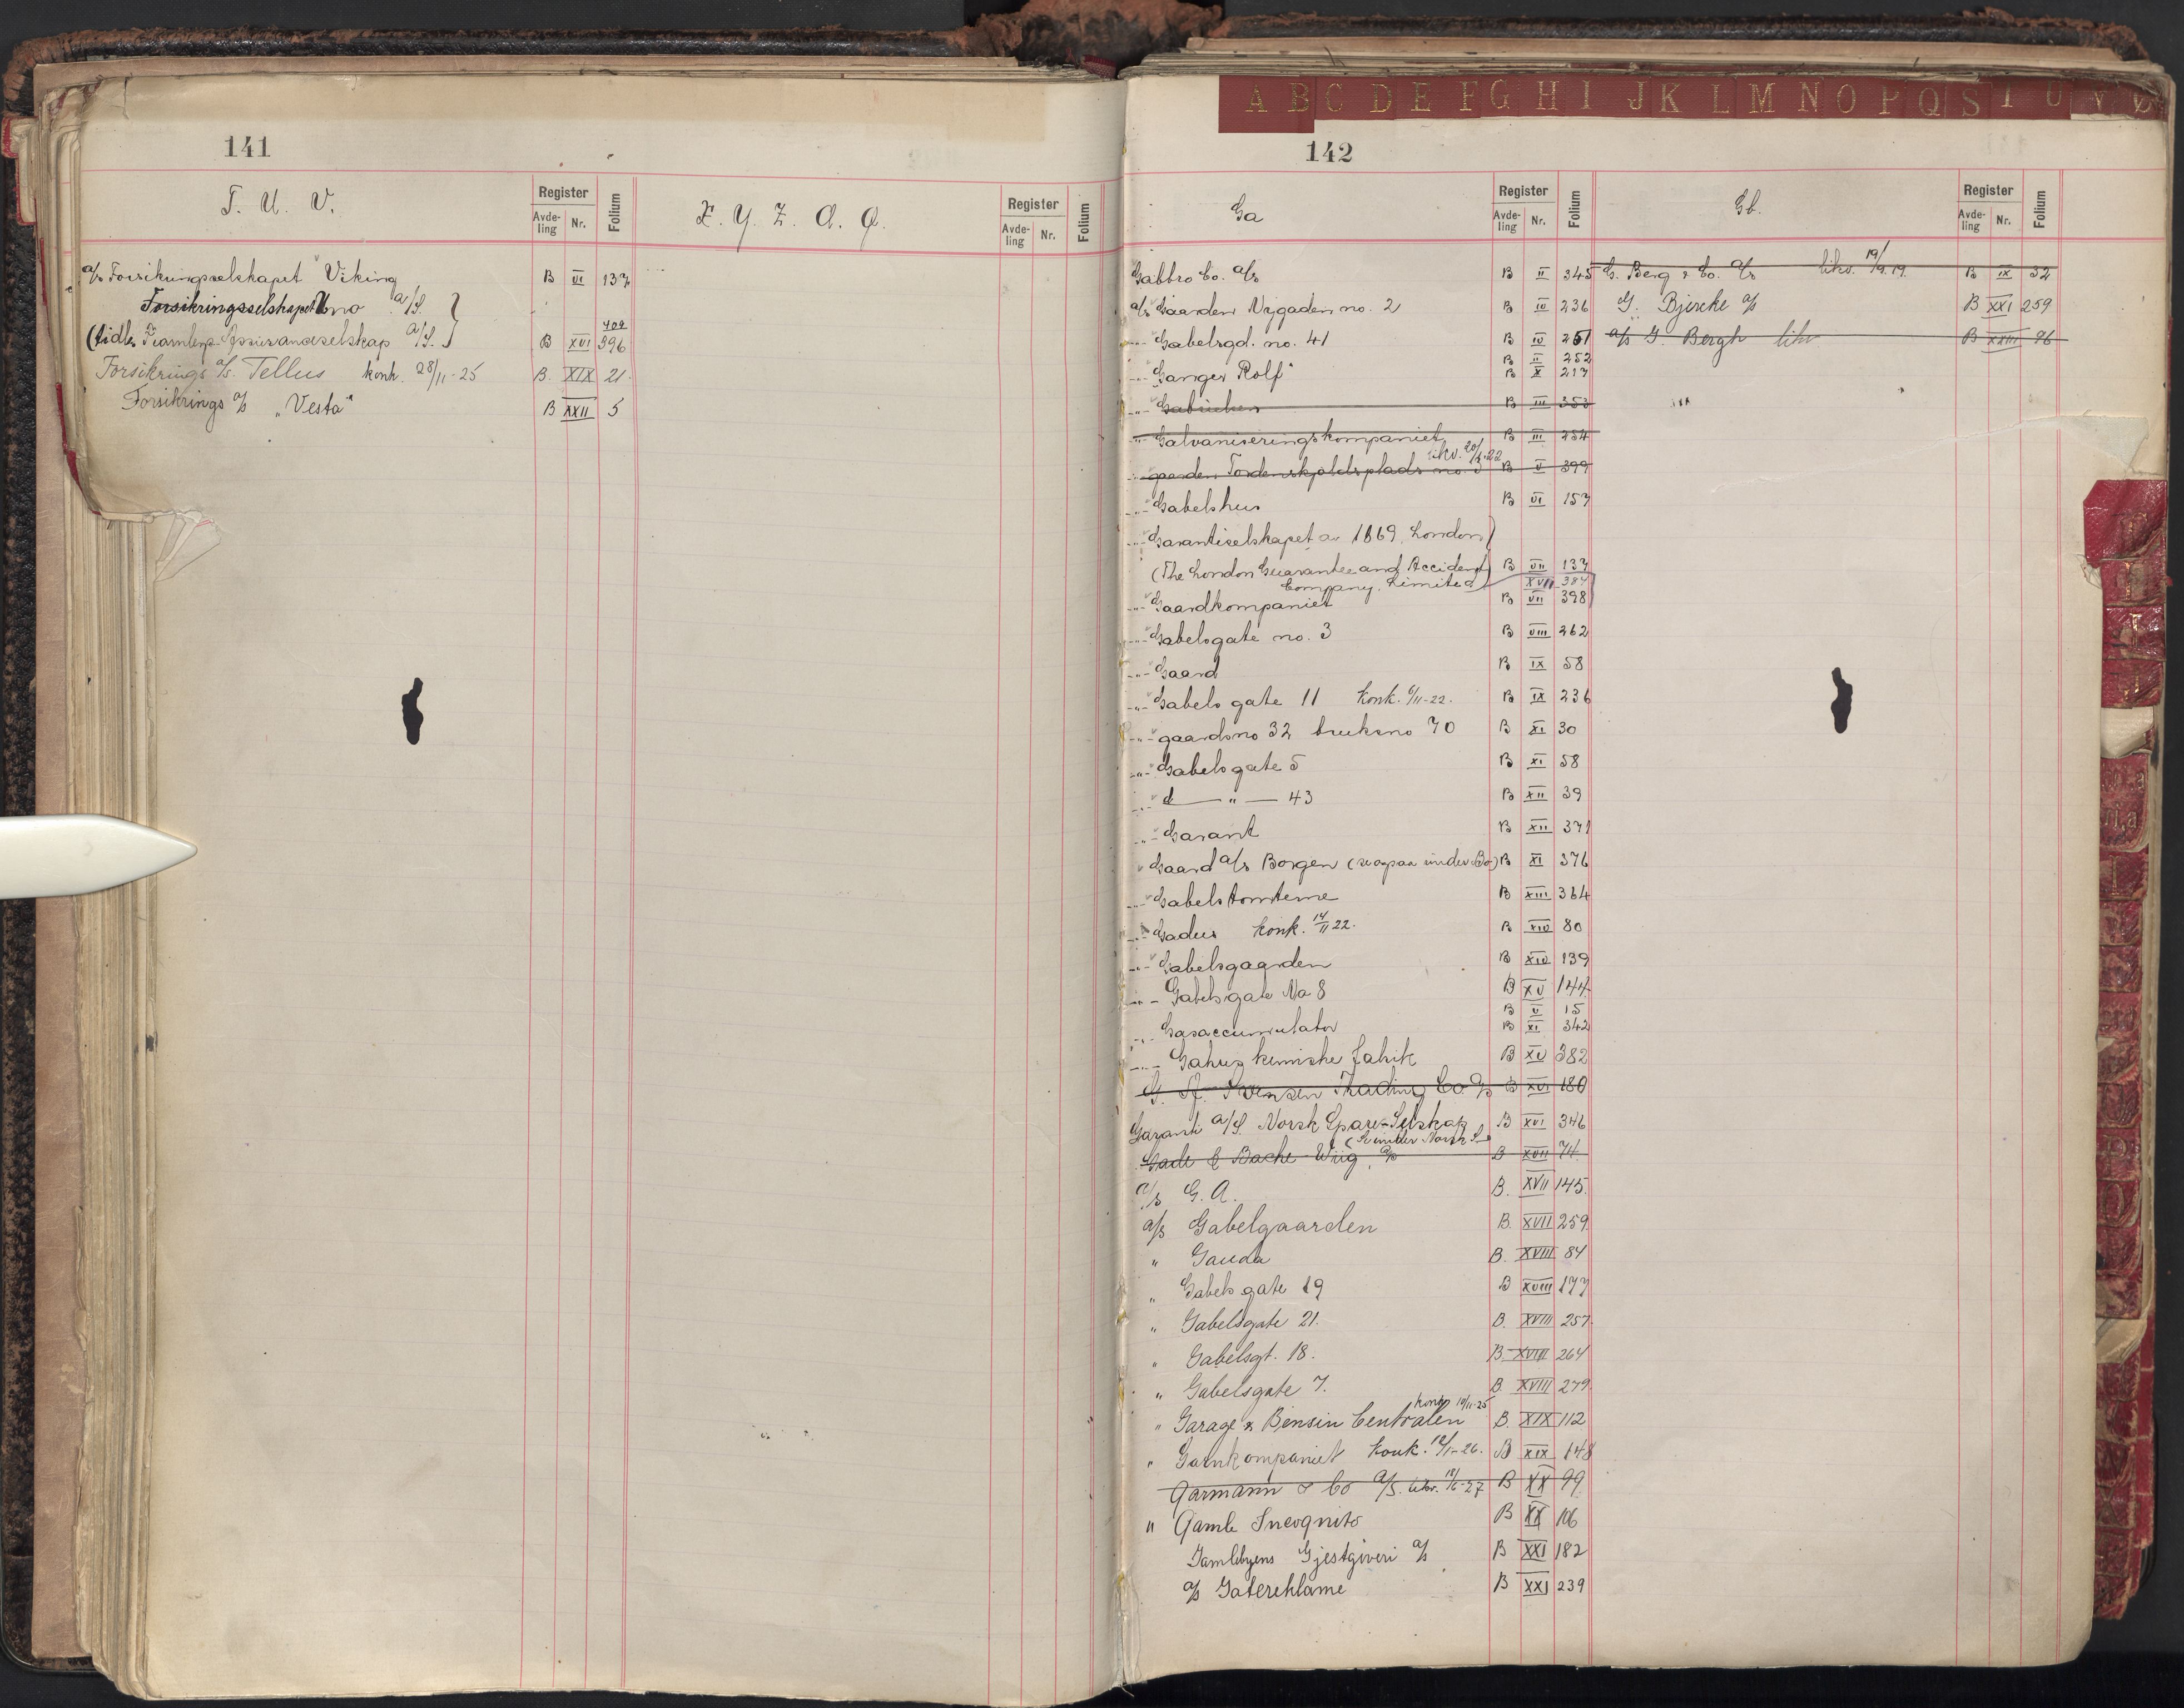 141
T. U. V.
Register
Avde-
ling
Nr.
Folium
X. Y. Z. Æ. Ø.
Register
Avde-
ling
Nr.
Folium
a/s Forsikringsselskapet "Viking B VI 137
Forsikringsselskapet Uno a/S.
409
(tidl. Framlens Assuranceselskap a/S.) B XVI 396
Forsikrings a/s. Tellus konk. 28/11-25 B. XIX 21
Forsikrings a/s „Vesta" B XXII 5
A B C D E F G H I J K L M N O P Q S T U V Ø
142
Ga
Register
Avde-
ling
Nr.
Folium
Gb.
Register
Avde-
ling
Nr.
Folium
Gabbro Co. a/s B II 345
a/s Gaarden Nygaden no. 2 B III 236
-"- Gabelsgd. no. 41 B IV 261
B II 252
-"- „Ganger Rolf" B X 217
-"- B III 353
-"- Galvaniseringskompaniet B III 254
likv. 20/4-22
-"- gaarden Tordenskjoldsplads no. 3 B V 399
-"- Gabelshus B VI 157
-"- Garantiselskapet av 1869, London
(The London Guarantee and Accident B VII 137
Company, Limited XVII 384
-"- Gaardkompaniet B VII 398
-"- Gabelsgate no. 3 B VIII 262
-"- Gaard B IX 58
-"- Gabels gate 11 konk. 6/11-22. B IX 236
-"- gaardsno 32 bruksno 70 B XI 30
-"- Gabels gate 5 B XI 58
-"- d — " — 43 B XII 39
-"- Garant B XII 371
Gaard a/s Borgen (se ogsaa under Bo) B XI 376
-"- Gabelstomterne B XIII 364
-"- Gadus konk. 14/11 22. B XIV 80
-"- Gabelsgaarden B XIV 139
-"- Gabelsgate No 8 B XV 144
B V 15
-"- Gasaccumulator B XI 342
-"- Gahns kemiske Fabrik B XV 382
G. A. Svensen Trading Co a/s B XVI 180
Garanti a/S Norsk Spare-Selskap B XVI 346
(Se under Norsk S)
Gade & Bache-Wiig, a/s B XVII 74
a/s G. A. B. XVII 145.
a/s Gabelgaarden B. XVII 259
" Gauda B. XVIII 84
" Gabels gate 19 B XVIII 177
" Gabelsgate 21. B. XVIII 257
" Gabelsgt. 18. B. XVIII 264
" Gabelsgate 7. B. XVIII 279.
konk 19/11-25
" Garage & Bensin Centralen B. XIX 112
" Garnkompaniet konk. 12/1-26. B XIX 148
Garmann & Co a/s. likv. 18/6-27 B XX 99
" Gamle Incognito B XX 106
Gamlebyens Gjestgiveri a/s B XXI 182
a/s Gatereklame B XXI 239
G. Berg & Co. a/s likv. 19/9.19. B IX 32
G. Bjercke a/s B XXI 259
a/s G. Bergh likv B XXIII 96